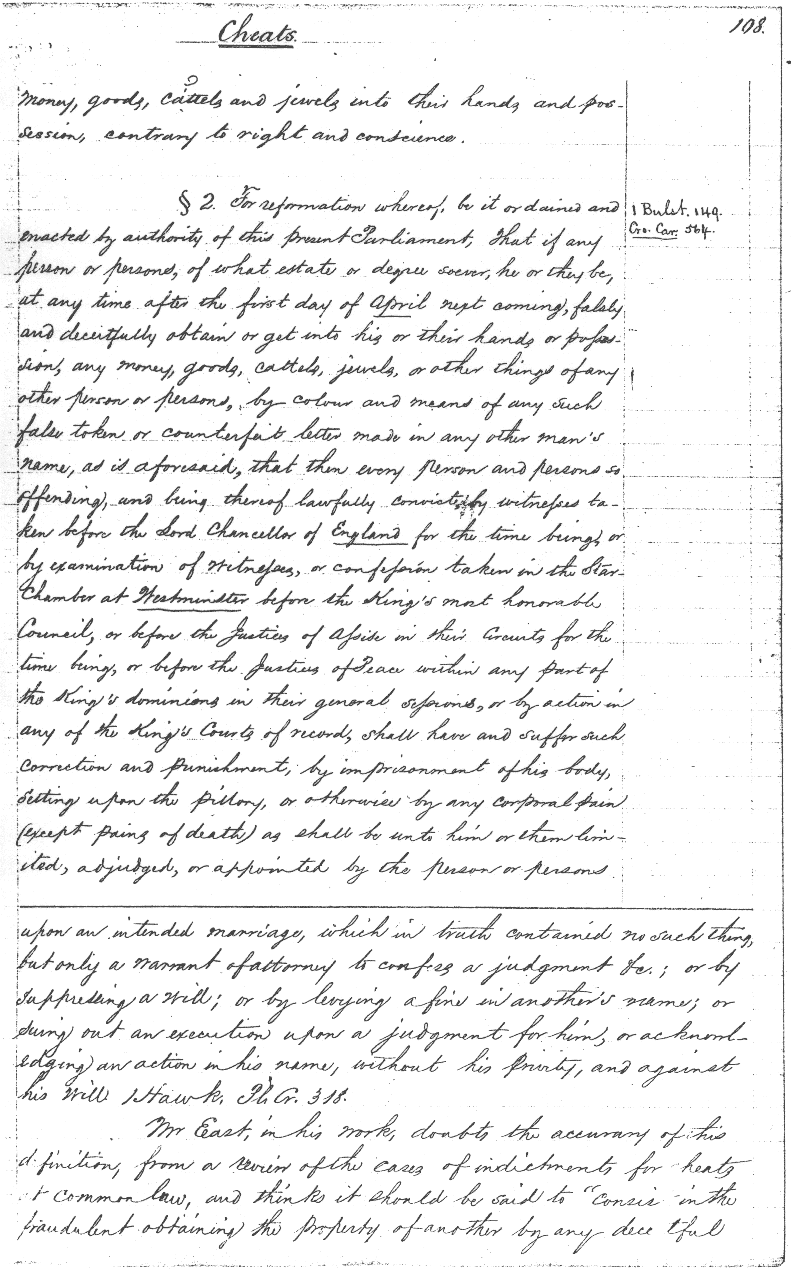 Cheats.
108.
money, goods, cattels and jewels into their hands and pos-
session, contrary to right and conscience.
§ 2. For reformation whereof, be it ordained and
1 Bulst. 149.
Cro. Car. 564.
enacted by authority of this present Parliament, That if any
person or persons, of what estate or degree soever, he or they be,
at any time after the first day of April next coming, falsly
and deceitfully obtain or get into his or their hands or posses-
sion, any money, goods, cattels, jewels, or other things of any
other person or persons, by colour and means of any such
false token or counterfeit letter made in any other man's
name, as is aforesaid, that then every person and persons so
offending, and being thereof lawfully convict, by witnesses ta-
ken before the Lord Chancellor of England for the time being, or
by examination of witnesses, or confession taken in the Star-
Chamber at Westminster before the King's most honorable
Council, or before the Justices of Assise in their Circuits for the
time being, or before the Justices of Peace within any part of
the King's dominions in their general sessions, or by action in
any of the King's Courts of record, shall have and suffer such
correction and punishment, by imprisonment of his body,
setting upon the pillory, or otherwise by any corporal pain
(except pains of death) as shall be unto him or them lim-
ited, adjudged, or appointed by the person or persons
upon an intended marriage, which in truth contained no such thing,
but only a warrant of attorney to confess a judgment &c.; or by
suppressing a will; or by levying a fine in another's name; or
suing out an execution upon a judgment for him, or acknowl-
edging an action in his name, without his privity, and against
his will 1 Hawk. Pl. Cr. 318.
Mr East, in his work, doubts the accuracy of this
d finition, from a review of the cases of indictments for heats
t common law, and thinks it should be said to "consis in the
fraudulent obtaining the property of another by any dece tful